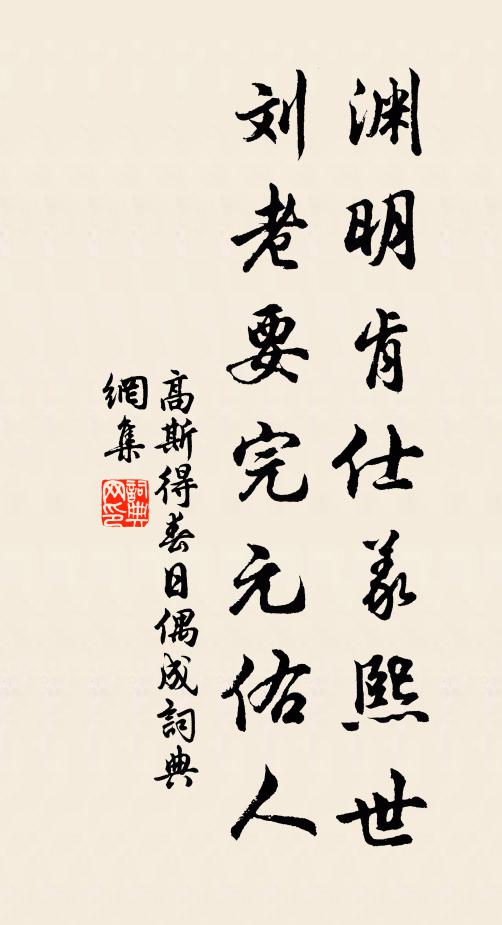 渊明肯仕义熙世
刘老要完元佑人
高斯得春日偶成詞典
網集
詞典
网印